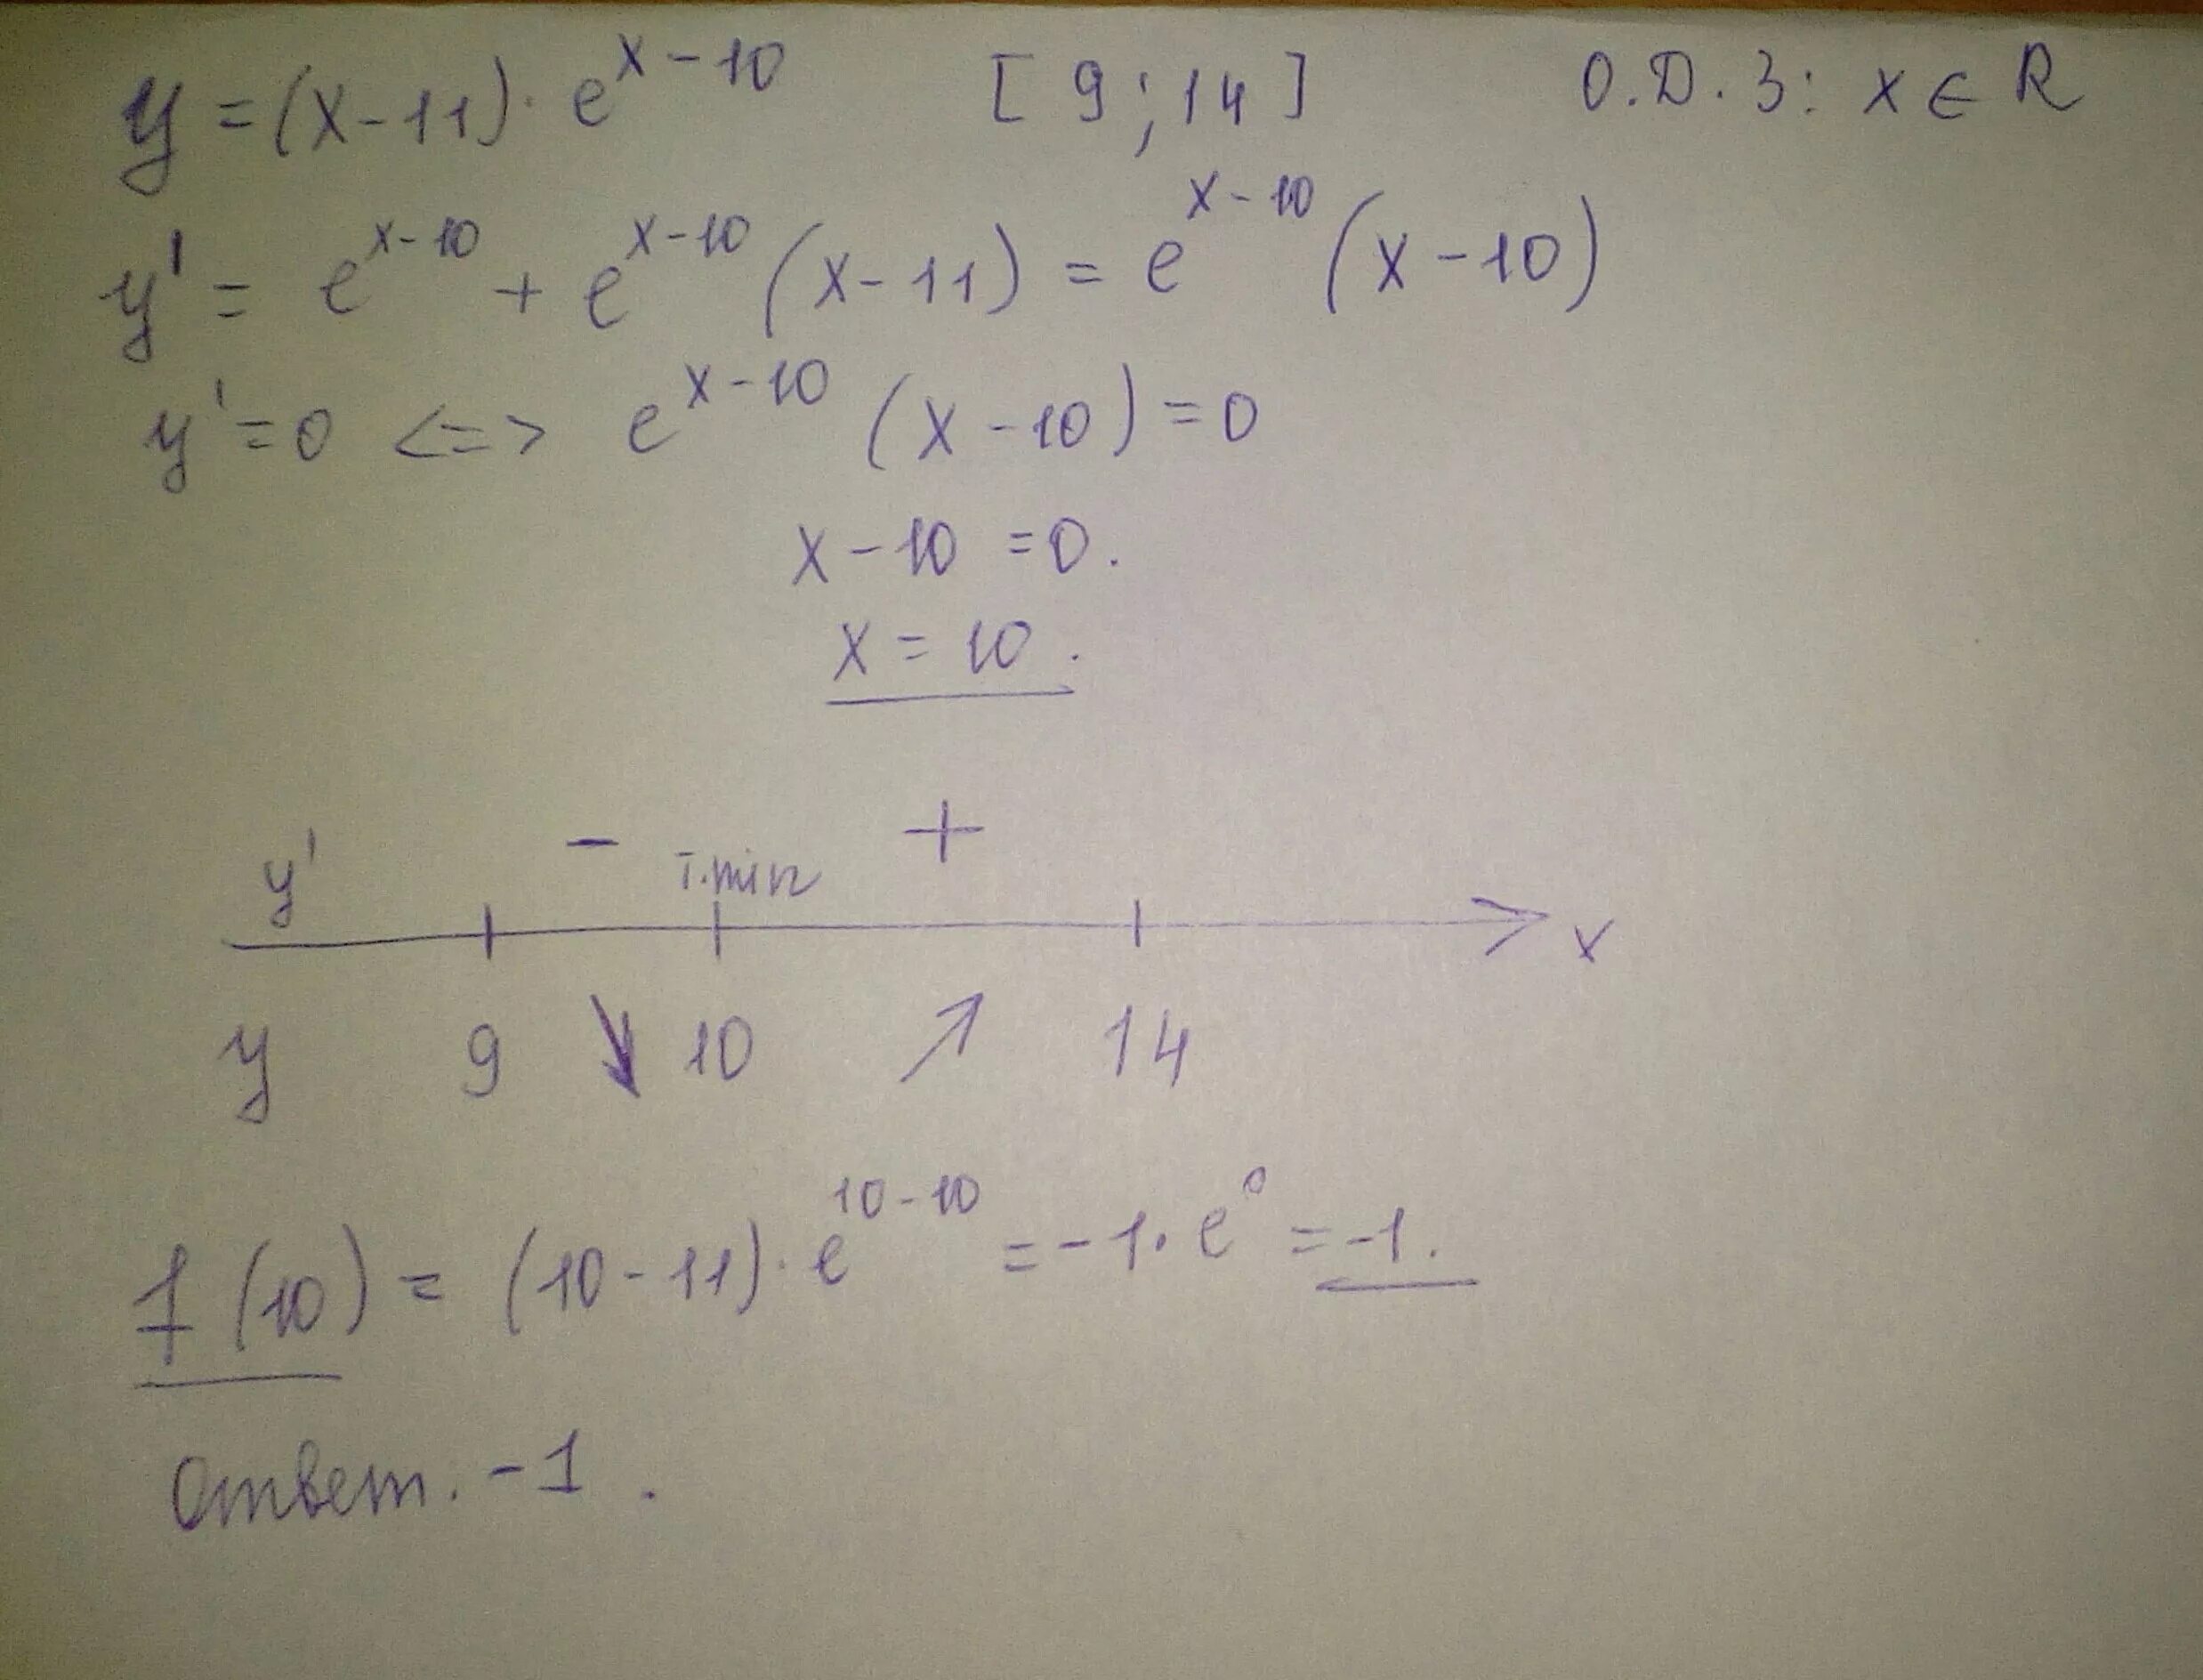 y = (x-11) · e^{x-10} [9; 14] О.Д.З: x ∈ R
y' = e^{x-10} + e^{x-10} (x-11) = e^{x-10} (x-10)
y' = 0 <=> e^{x-10} (x-10) = 0
x - 10 = 0.
x = 10.
y' - т.min + x
y 9 ↘ 10 ↗ 14
f(10) = (10-11) · e^{10-10} = -1 · e^0 = -1.
Ответ. -1.